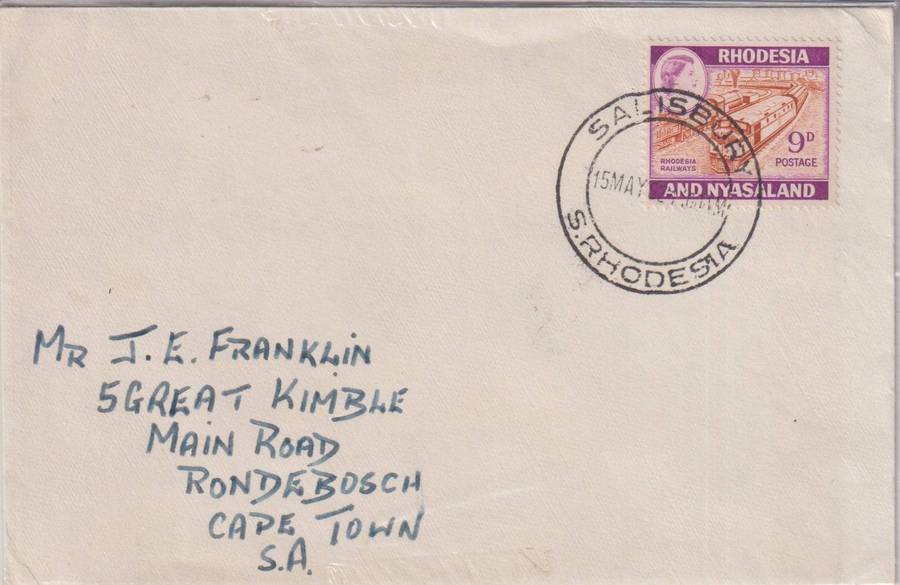 RHODESIA
9D
POSTAGE
RHODESIA
RAILWAYS
AND NYASALAND
SALISBURY
15MAY
S.RHODESIA
MR J.E. FRANKLIN
5 GREAT KIMBLE
MAIN ROAD
RONDEBOSCH
CAPE TOWN
S.A.